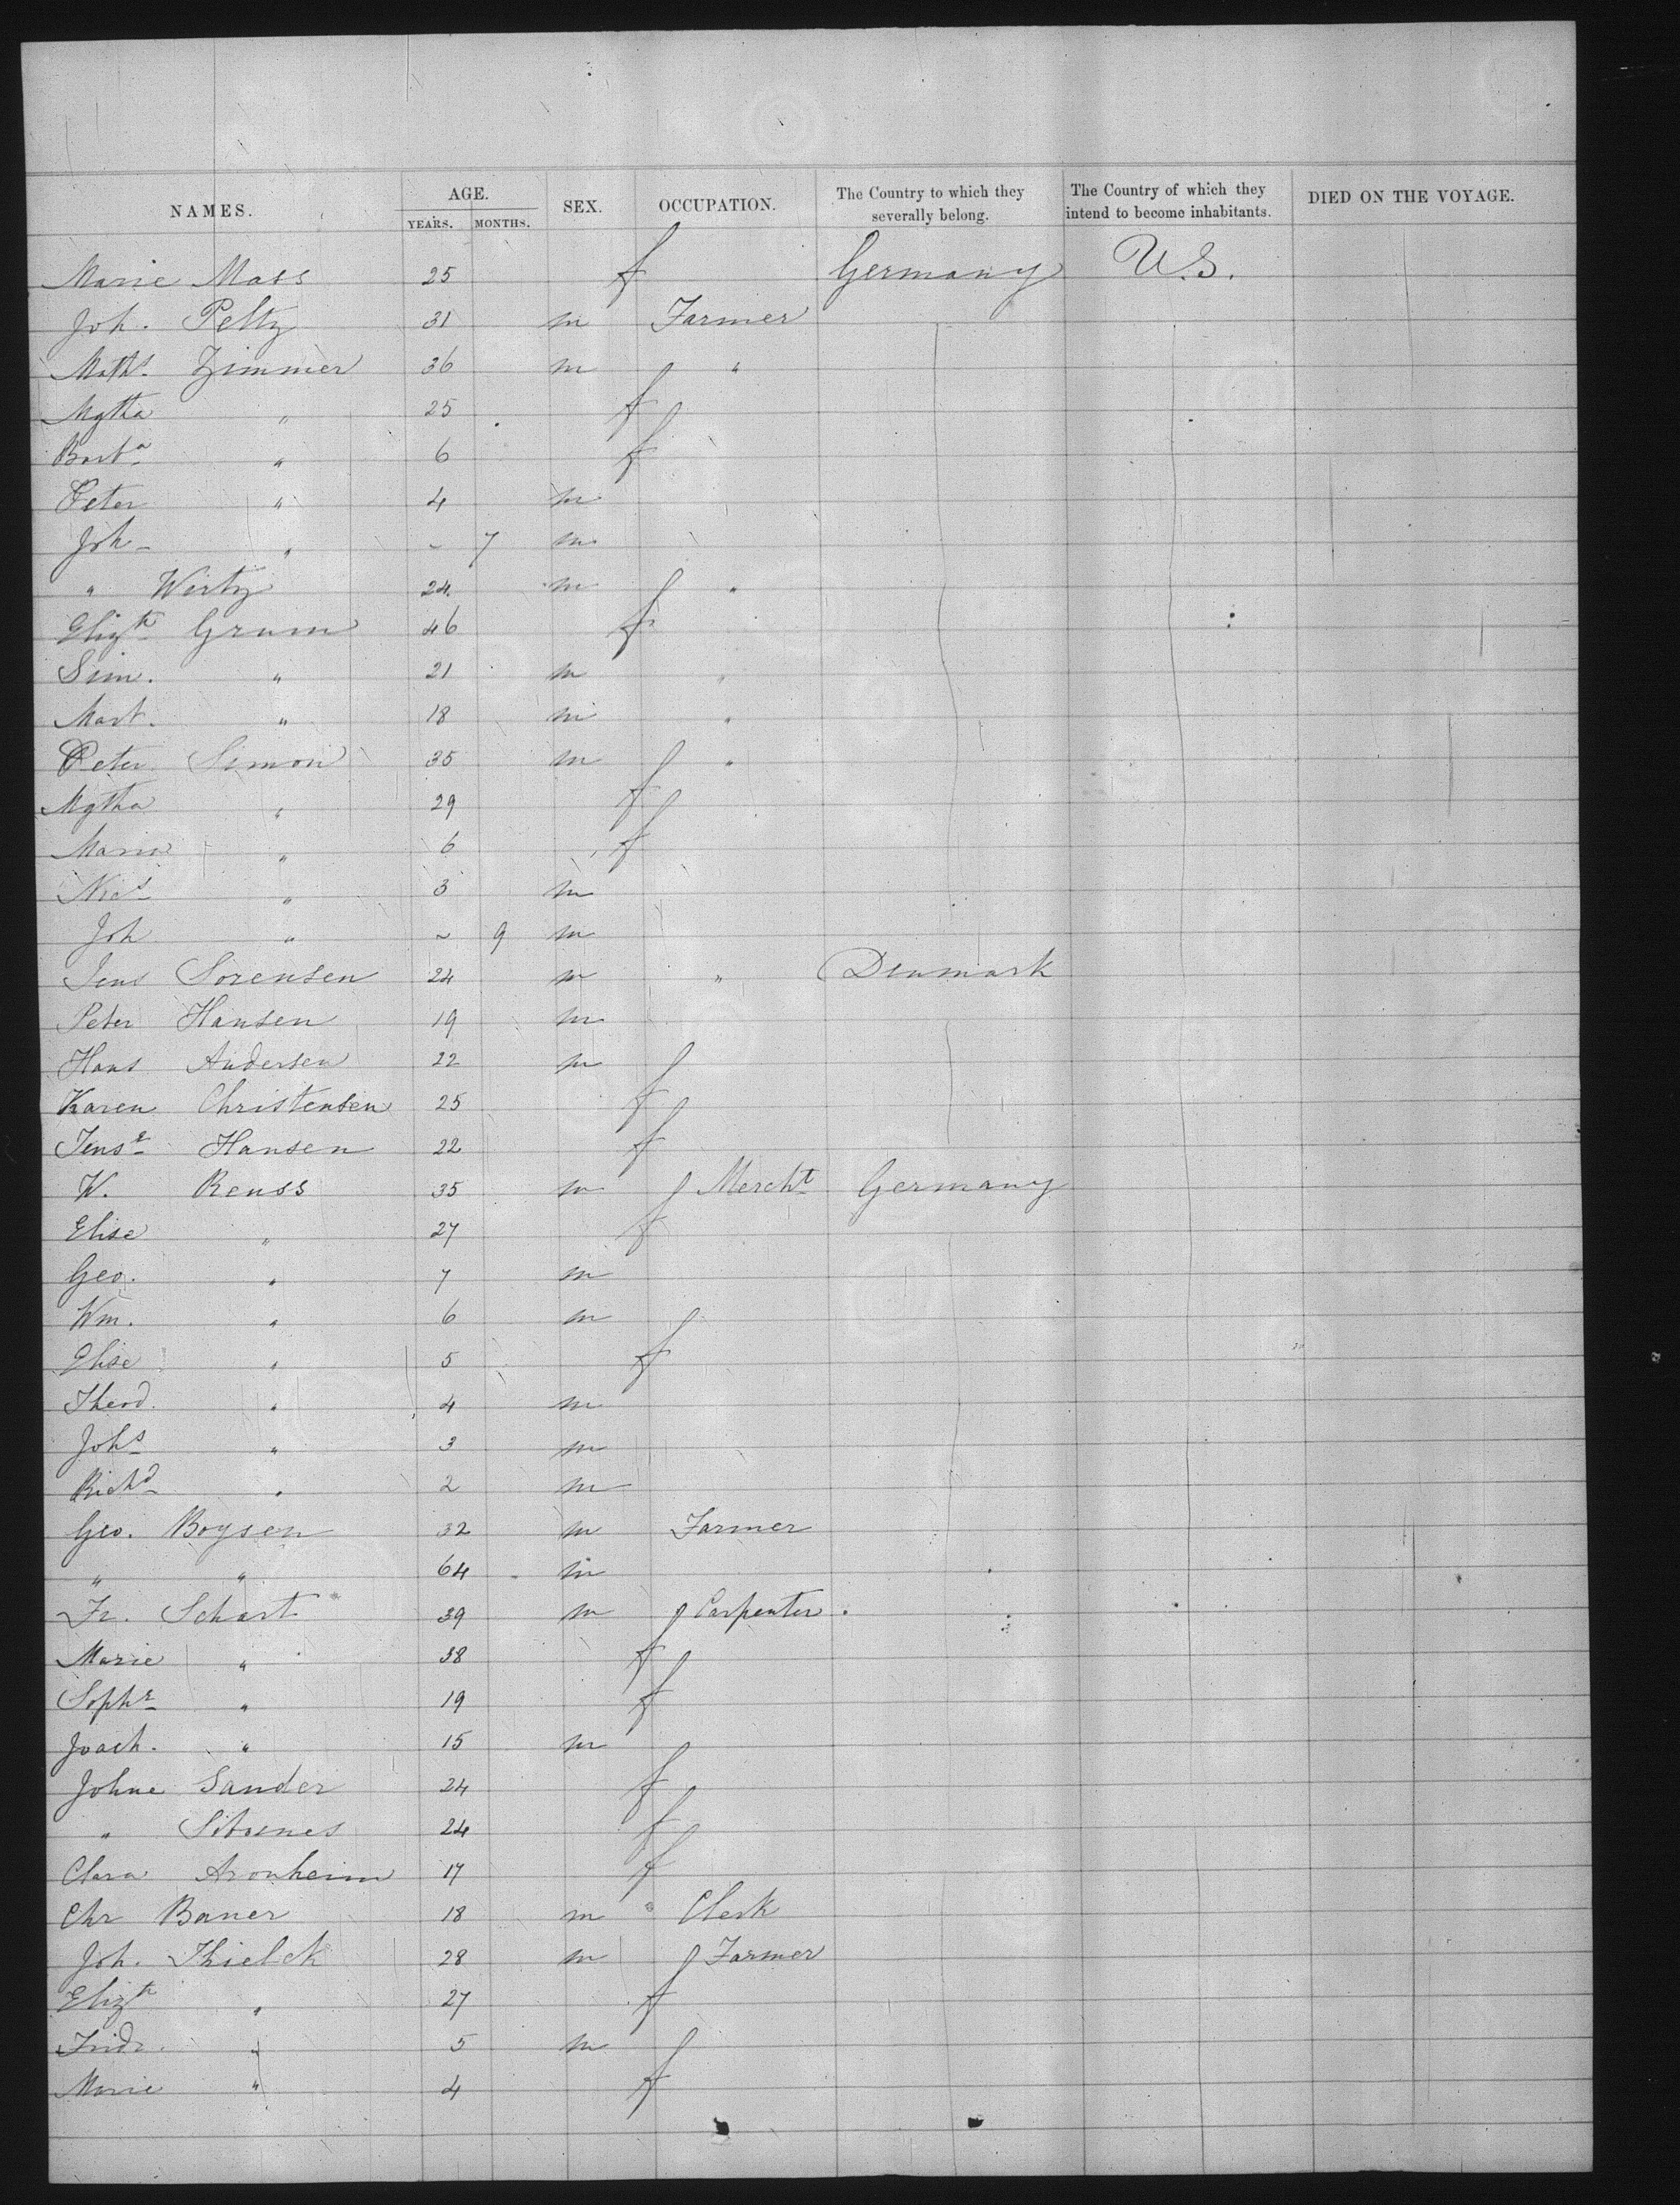 NAMES. AGE. YEARS. MONTHS. SEX. OCCUPATION. The Country to which they severally belong. The Country of which they intend to become inhabitants. DIED ON THE VOYAGE.
Marie Mass 25 f Germany U.S.
Joh. Peltz 31 m Farmer
Maths. Zimmer 36 m "
Mgtha " 25 f
Barba " 6 f
Peter " 4 m
Joh " - 7 m
" Wirtz 24 m "
Elizth Grum 46 f
Sim. " 21 m "
Mart. " 18 m "
Peter Simon 35 m "
Mgtha " 29 f
Marie " 6 f
Nics " 3 m
Joh " ~ 9 m
Jens Sorensen 24 m " Denmark
Peter Hansen 19 m
Hans Andersen 22 m
Karen Christensen 25 f
Jense Hansen 22 f
W. Renss 35 m Mercht Germany
Elise " 27 f
Geo. " 7 m
Wm. " 6 m
Elise " 5 f
Theod. " 4 m
Johs " 3 m
Richd " 2 m
Geo. Boysen 32 m Farmer
" " 64 m
Fr. Schart 39 m Carpenter
Marie " 38 f
Sophe " 19 f
Joach. " 15 m
Johne Sander 24 f
" 24 f
Clara Aronheim 17 f
Chr Baner 18 m Clerk
Joh. Thielck 28 m Farmer
Elizth " 27 f
Fridr. " 5 m
Marie " 4 f